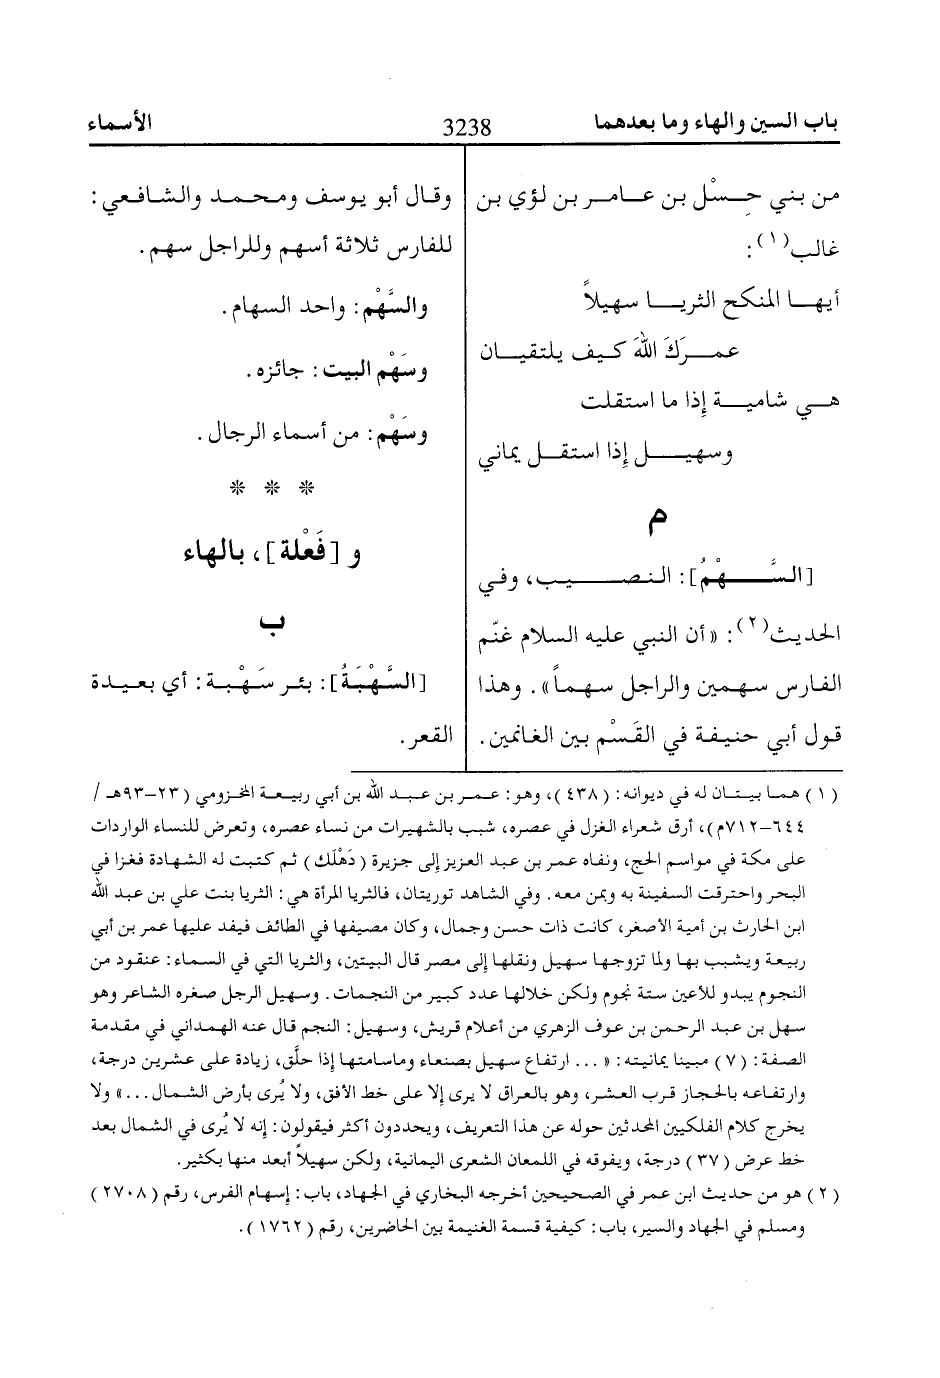 باب السين والهاء وما بعدهما 3238 الأسماء
من بني حِسْل بن عامر بن لؤي بن
غالب(١):
أيها المنكح الثريا سهيلاً
عمركَ اللهَ كيف يلتقيان
هي شامية إذا ما استقلت
وسهيل إذا استقل يماني
م
[السَّهْمُ]: النصيب، وفي
الحديث(٢): «أن النبي عليه السلام غنّم
الفارس سهمين والراجل سهماً». وهذا
قول أبي حنيفة في القَسْم بين الغانمين.
وقال أبو يوسف ومحمد والشافعي:
للفارس ثلاثة أسهم وللراجل سهم.
والسَّهْم: واحد السهام.
وسَهْم البيت: جائزه.
وسَهْم: من أسماء الرجال.
* * *
و [فَعْلة]، بالهاء
ب
[السَّهْبَةُ]: بئر سَهْبة: أي بعيدة
القعر.
(١) هما بيتان له في ديوانه: (٤٣٨)، وهو: عمر بن عبد الله بن أبي ربيعة المخزومي (٢٣-٩٣هـ/
٦٤٤-٧١٢م)، أرق شعراء الغزل في عصره، شبب بالشهيرات من نساء عصره، وتعرض للنساء الواردات
على مكة في مواسم الحج، ونفاه عمر بن عبد العزيز إلى جزيرة (دَهْلَك) ثم كتبت له الشهادة فغزا في
البحر واحترقت السفينة به وبمن معه. وفي الشاهد توريتان، فالثريا المرأة هي: الثريا بنت علي بن عبد الله
ابن الحارث بن أمية الأصغر، كانت ذات حسن وجمال، وكان مصيفها في الطائف فيفد عليها عمر بن أبي
ربيعة ويشبب بها ولما تزوجها سهيل ونقلها إلى مصر قال البيتين، والثريا التي في السماء: عنقود من
النجوم يبدو للأعين ستة نجوم ولكن خلالها عدد كبير من النجمات. وسهيل الرجل صغره الشاعر وهو
سهل بن عبد الرحمن بن عوف الزهري من أعلام قريش، وسهيل: النجم قال عنه الهمداني في مقدمة
الصفة: (٧) مبينا يمانيته: «... ارتفاع سهيل بصنعاء وماسامتها إذا حلَّق، زيادة على عشرين درجة،
وارتفاعه بالحجاز قرب العشر، وهو بالعراق لا يرى إلا على خط الأفق، ولا يُرى بأرض الشمال...» ولا
يخرج كلام الفلكيين المحدثين حوله عن هذا التعريف، ويحددون أكثر فيقولون: إنه لا يُرى في الشمال بعد
خط عرض (٣٧) درجة، ويفوقه في اللمعان الشعرى اليمانية، ولكن سهيلاً أبعد منها بكثير.
(٢) هو من حديث ابن عمر في الصحيحين أخرجه البخاري في الجهاد، باب: إسهام الفرس، رقم (٢٧٠٨)
ومسلم في الجهاد والسير، باب: كيفية قسمة الغنيمة بين الحاضرين، رقم (١٧٦٢).